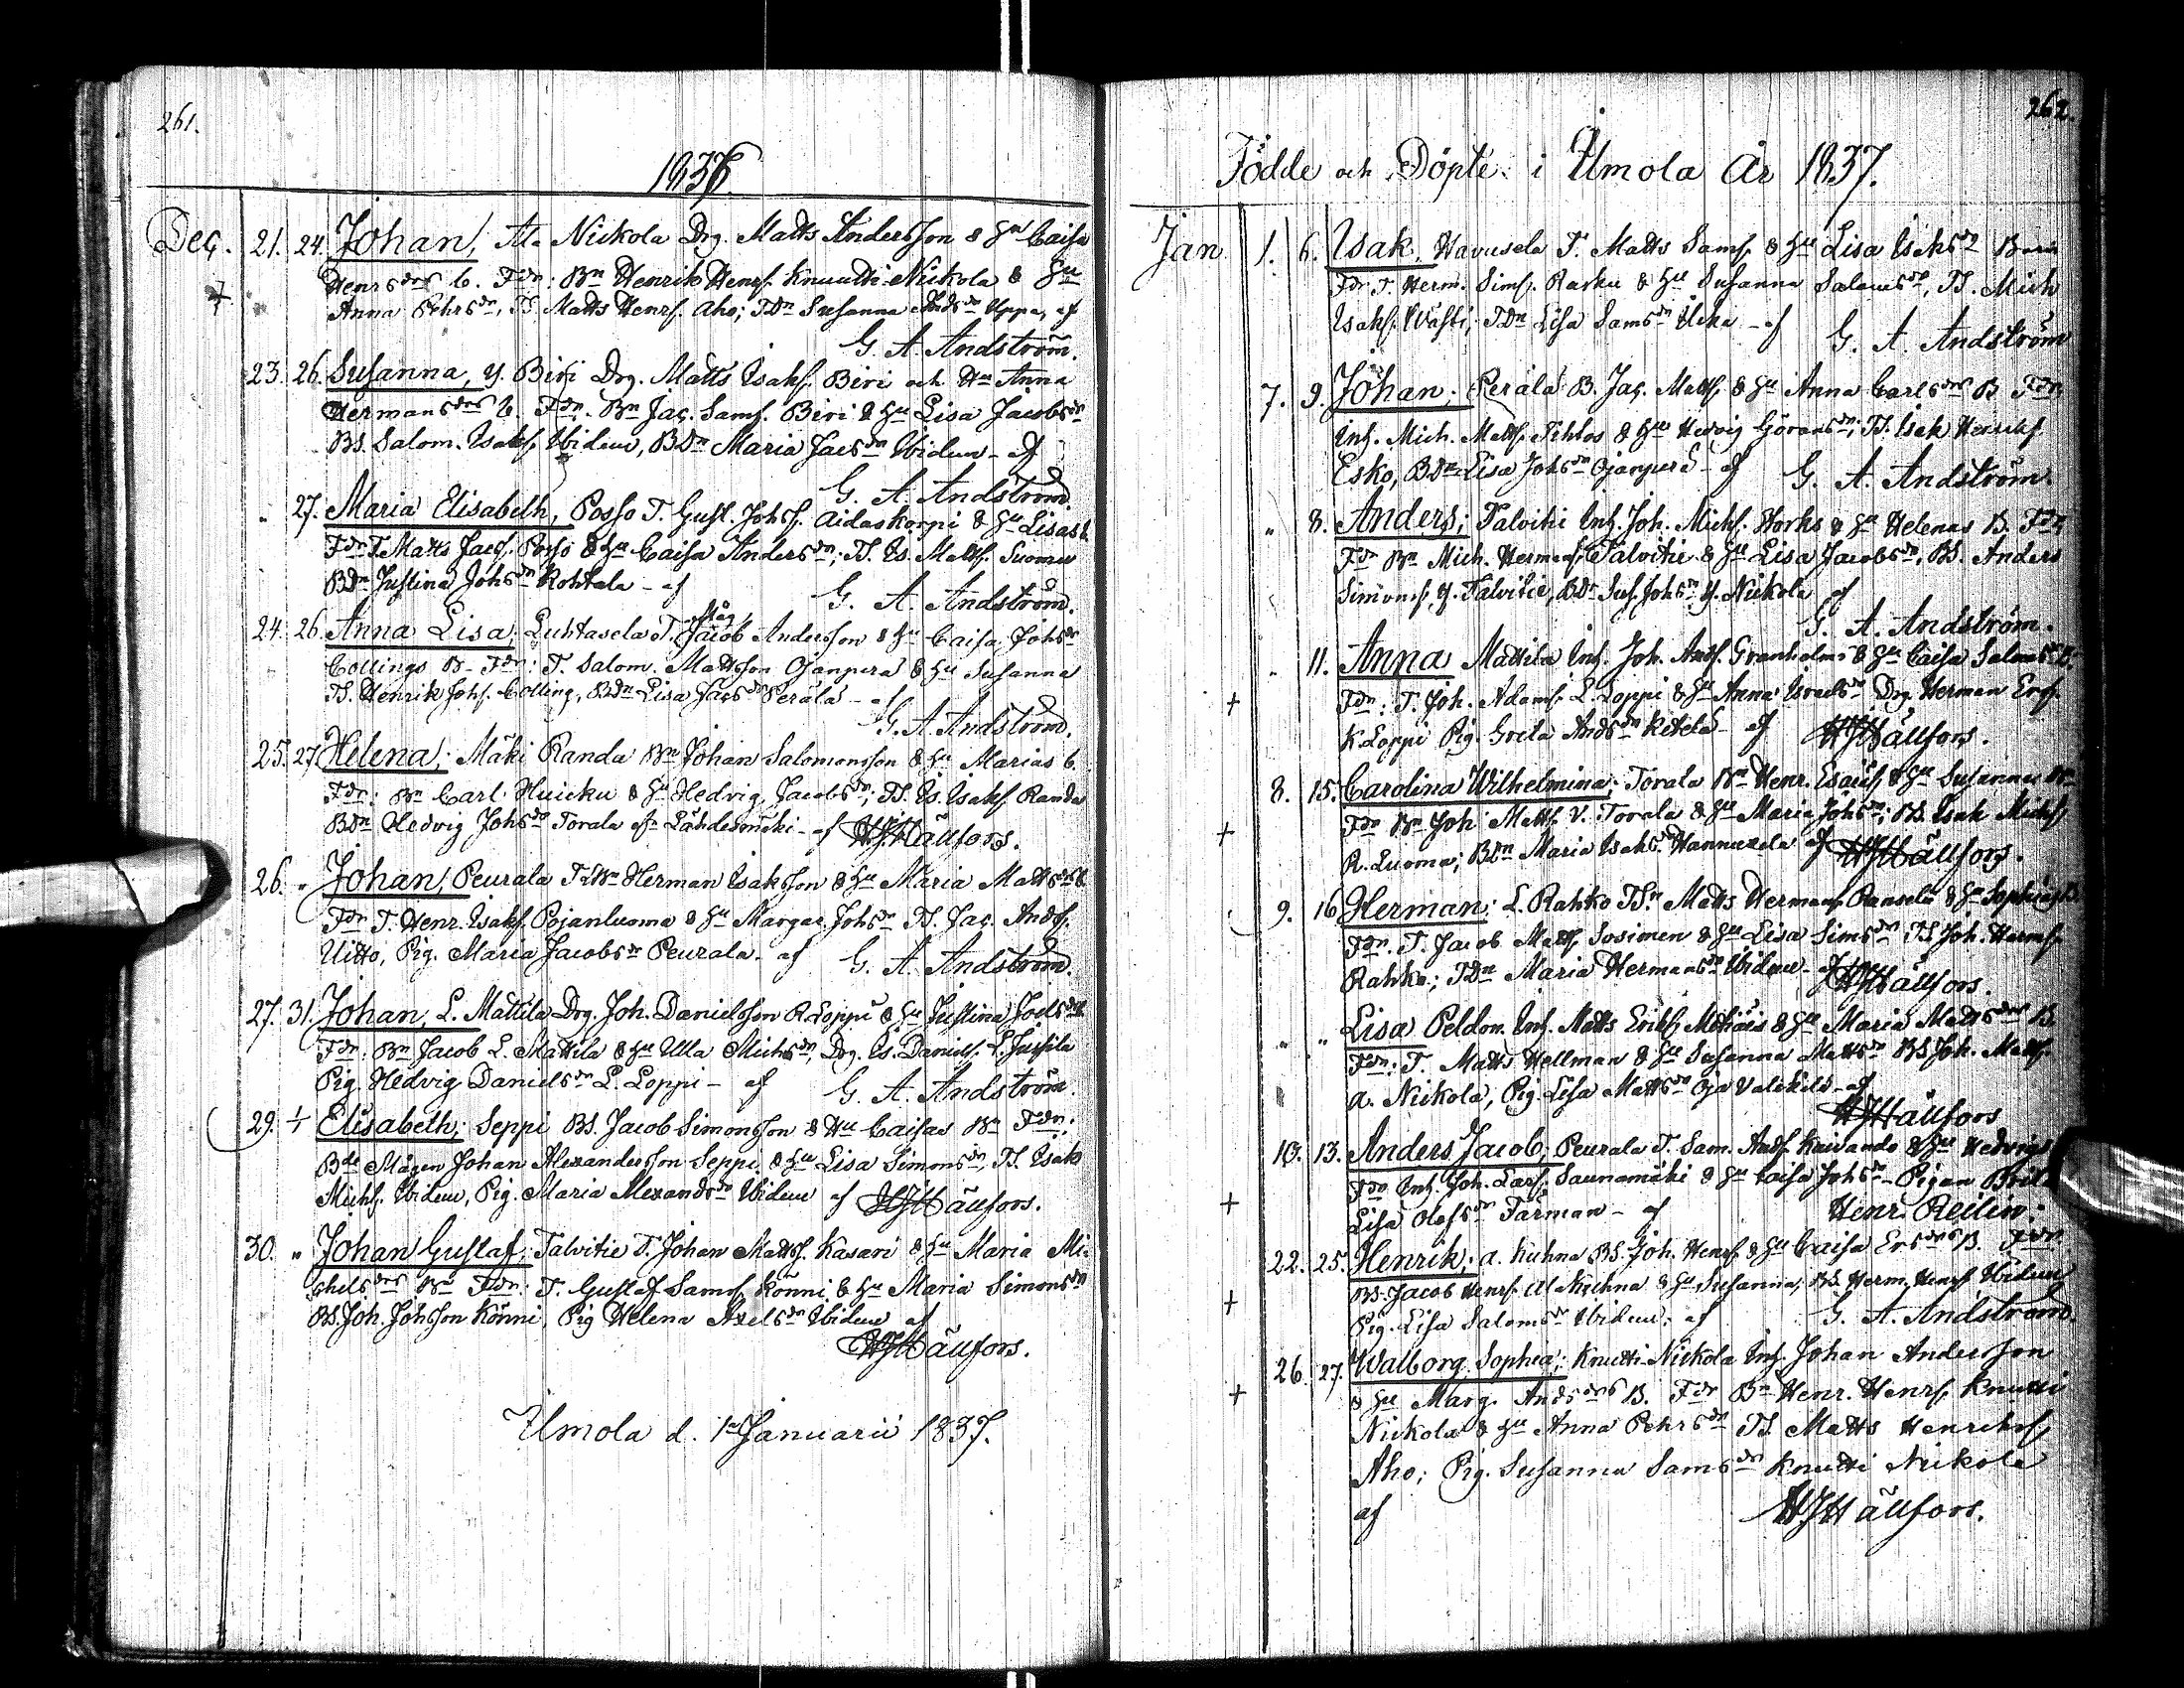 261.
1836.
Dec. 21. 24. Johan, A. Nickola Drg. Matts Andersson & Hu Caisa
Henrsdrs b. Fdr: Bn Henrik Henrs. Knuutti Nickola & Hu
+ Anna Pehrsdr, TS. Matts Henrs. Aho; TDr Susanna Andsdr Uppa, af
G. A. Andström.
23. 26. Susanna, Y. Biri Drg. Matts Isaks. Biri och Hu Anna
Hermansdrs b. Fdr. Bn Jac. Sams. Biri & Hu Lisa Jacobsdr
BS. Salom. Isaks. Widem, BDr Maria Jacsdr Widem - af
G. A. Andström.
" 27. Maria Elisabeth, Posso T. Gust. Johs. Aidaskorpi & Hu Lisas b.
Fdr T. Matts Jacs. Posso & Hu Caisa Andersdr; TS. Is. Matts. Suomu
BDr Justina Johsdr Kohtala - af G. A. Andström.
24. 26. Anna Lisa, Luhtasela T. Måg Jacob Andersson & Hu Caisa Johsdr
Collings B- Fdr: T. Salom. Mattsson Ojanpera & Hu Susanna
TS. Henrik Johs. Colling, BDr Lisa Jacsdr Perälä - af
G. A. Andström.
25. 27 Helena; Mäki Randa Bn Johan Salomonsson & Hu Marias b.
Fdr: Bn Carl Huicku & Hu Hedvig Jacobsdr; TS. Is. Isaks. Randa
BDr Hedvig Johsdr Torala Lähdesmäki - af HJHällfors.
26. " Johan, Peurala T. Bn Herman Isaksson & Hu Maria Mattsdrs b.
Fdr T. Henr. Isaks. Pojanluoma & Hu Margar. Johsdr TS. Jac. Ands.
Uitto, Pig. Maria Jacobsdr Peurala - af G. A. Andström.
27. 31. Johan, L. Mattila Drg. Joh. Danielsson R. Loppi & Hu Justina Joelsdrs
Fdr: Bn Jacob L. Mattila & Hu Ulla Michsdr, Drg. Is. Daniels. L. Jussila
Pig. Hedvig Danielsdr L. Loppi - af G. A. Andström.
29. + Elisabeth; Seppi BS. Jacob Simonsson & Hu Caisas Bn Fdr:
Bde Mågen Johan Alexandersson Seppi & Hu Lisa Simonsdr, TS. Isak
Michs. Widem, Pig. Maria Alexandsdr Widem af HJHällfors.
30. " Johan Gustaf; Talvitie T. Johan Matts. Kasari & Hu Maria Mi-
chelsdrs Bn Fdr: T. Gustaf Sams. Könni & Hu Maria Simonsdr
BS. Joh. Johsson Könni Pig Helena Axelsdr Widem af
HJHällfors.
Ilmola d. 1a Januarii 1837.
262.
Födde och Döpte i Ilmola År 1837.
Jan 1. 6. Isak, Havusela T. Matts Sams. & Hu Lisa Isaksdr Barn
Fdr T. Herm. Sims. Rasku & Hu Susanna Salamsdr, TS. Mich
Isaks. Wästi; TDr Lisa Samsdr - af G. A. Andström
7. 9. Johan; Perälä B. Jac. Matts. & Hu Anna Carlsdrs B Fdr
Inh. Mich. Matts. & Hu Hedvig Göransdr; TS. Isak Henriks.
Esko, BDr Lisa Johsdr Ojanpera - af G. A. Andström.
" 8. Anders; Talvitie Inh. Joh. Michs. Works & Hu Helenas B. Fdr
Fdr Bn Mich. Hermans. Talvitie & Hu Lisa Jacobsdr, BS. Anders
Simons. Y. Talvitie, BDr Sus. Johsdr Y. Nickola af
G. A. Andström.
" 11. Anna Mattila Inh. Joh. Ands. Granholms & Hu Caisa Salomsdrs B.
+ Fdr: T. Joh. Adams. L. Loppi & Hu Anna Israelsdr Drg. Herman Ers.
K. Loppi Pig. Greta Andsdr Ketola - af HJHällfors.
8. 15. Carolina Wilhelmina; Torala Bn Henr. Esaiæs. & Hu Susannas Bn
+ Fdr Bn Joh Matts. V. Torala & Hu Maria Johsdr; BS. Isak Michs.
R. Luoma; BDr Maria Isaksdr Hannuxela af HJHällfors.
9. 16 Herman; L. Rahko TSn Matts Hermans. Ranvela & Hu Sophias B.
Fdr. T. Jacob Matts. Sosimen & Hu Lisa Simsdr TS. Joh. Herms.
Rahko; TDr Maria Hermansdr Widem - af HJHällfors.
" " Lisa Peldon. Inh. Matts Eriks. & Hu Maria Mattsdrs B.
Fdr: T. Matts Hellman & Hu Susanna Mattsdr BS. Joh. Matts.
A. Nickola, Pig. Lisa Mattsdr Oja Valckila - af
HJHällfors
10. 13. Anders Jacob; Peurala T. Sam. Ands. & Hu Hedvigs
Fdr Inh. Joh. Lars. Saunamäki & Hu Caisa Johsdr - Pigan Brita
+ Lisa Olofsdr Färman - af Henr. Reilin:
22. 25. Henrik; A. Kuhna BS. Joh. Henrs. & Hu Caisa Ersdrs B. Fdr.
+ BS. Jacob Henrs. Al Kuhna & Hu Susanna; BS. Herm. Henrs. Widem
Pig. Lisa Salomsdr Widem; af G. A. Andström.
26. 27. Walborg Sophia; Knutti Nickola Inh. Johan Andersson
+ & Hu Marg. Andsdrs B. Fdr Bn Henr. Henrs. Knutti
Nickola & Hu Anna Pehrsdr TS. Matts Henriks.
Aho; Pig. Susanna Samsdr Knutti Nickola
af HJHällfors.